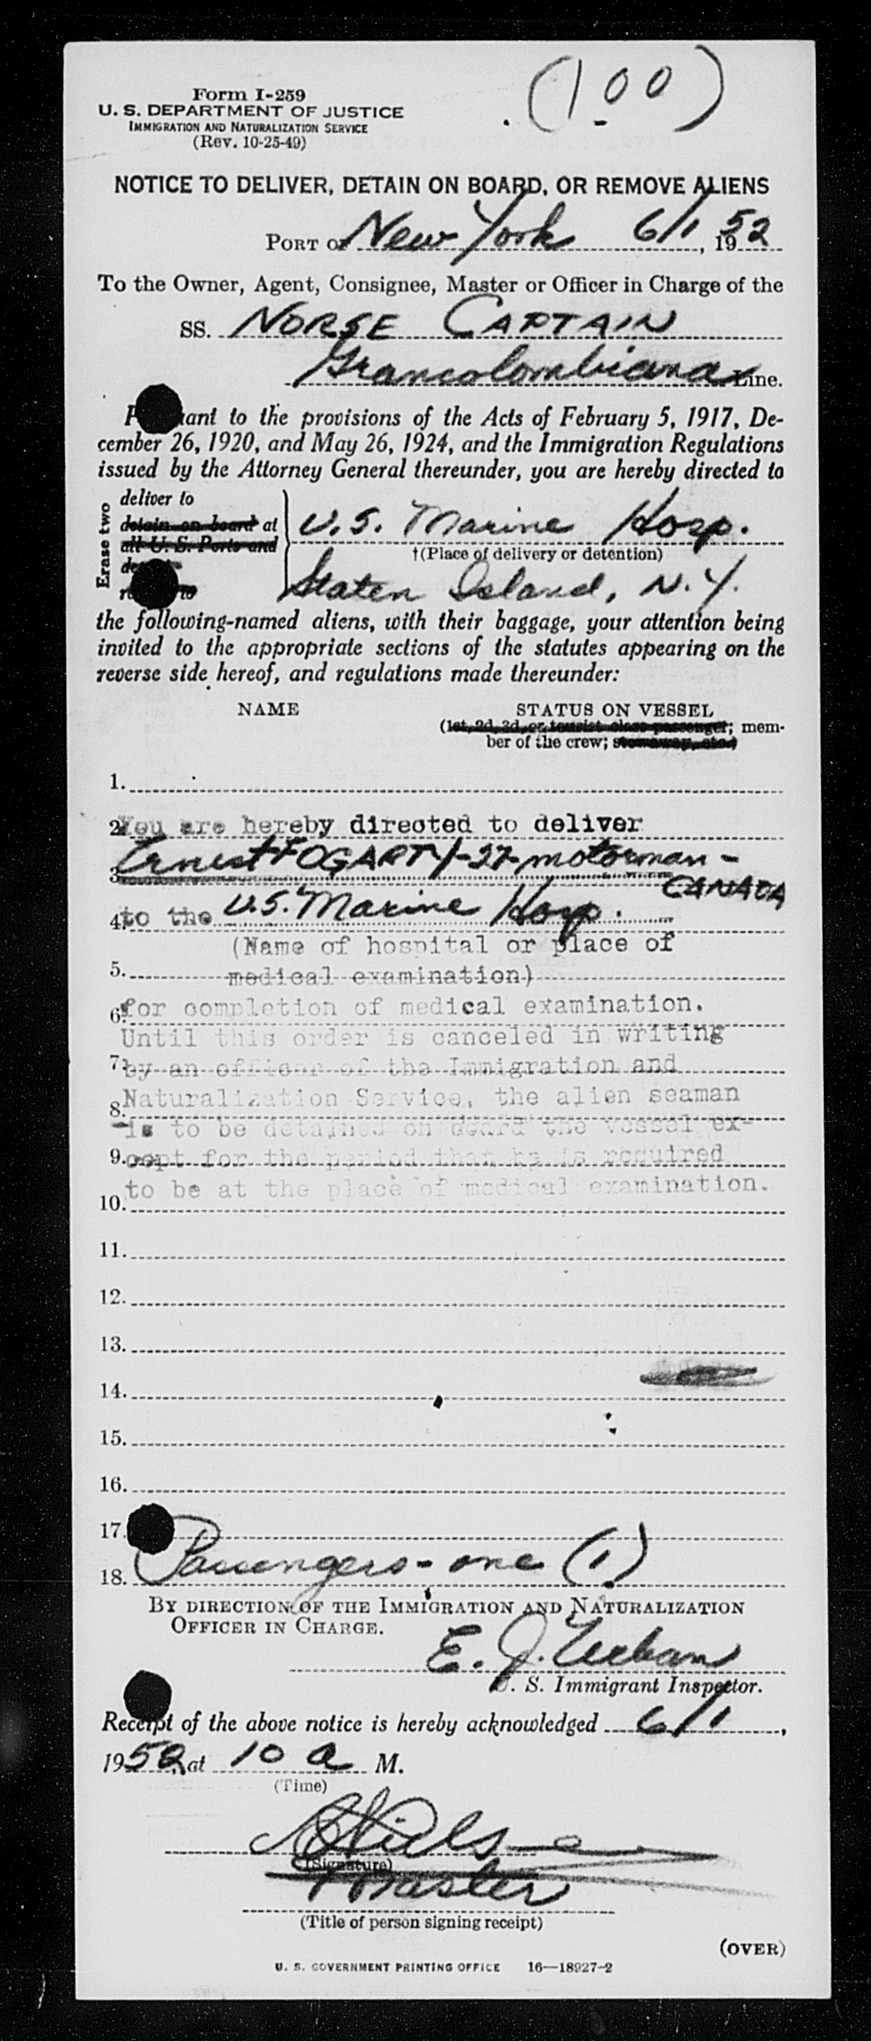 (100)
Form I-259
U. S. DEPARTMENT OF JUSTICE
IMMIGRATION AND NATURALIZATION SERVICE
(Rev. 10-25-49)
NOTICE TO DELIVER, DETAIN ON BOARD, OR REMOVE ALIENS
PORT OF New York 6/1, 1952
To the Owner, Agent, Consignee, Master or Officer in Charge of the
SS. NORSE CAPTAIN
Grancolombiana Line.
to the provisions of the Acts of February 5, 1917, De-
cember 26, 1920, and May 26, 1924, and the Immigration Regulations
issued by the Attorney General thereunder, you are hereby directed to
Erase two
deliver to
detain on board at
all U. S. Ports and
U. S. Marine Hosp.
†(Place of delivery or detention)
Staten Island, N.Y.
the following-named aliens, with their baggage, your attention being
invited to the appropriate sections of the statutes appearing on the
reverse side hereof, and regulations made thereunder:
NAME STATUS ON VESSEL
(1st, 2d, 3d, or tourist class passenger; mem-
ber of the crew; stowaway, etc.)
1.
2. You are hereby directed to deliver
3. Ernest FOGARTY-27-motorman-
CANADA
4. to the U.S. Marine Hosp.
(Name of hospital or place of
5. medical examination)
6. for completion of medical examination.
Until this order is canceled in writing
7. by an officer of the Immigration and
Naturalization Service, the alien seaman
8.
is to be detained on board the vessel ex-
9. cept for the period that he is required
to be at the place of medical examination.
10.
11.
12.
13.
14.
15.
16.
17.
Passengers - one (1)
18.
BY DIRECTION OF THE IMMIGRATION AND NATURALIZATION
OFFICER IN CHARGE.
E. J. Urban
U. S. Immigrant Inspector.
Receipt of the above notice is hereby acknowledged 6/1,
1952, at 10 a M.
(Time)
(Signature)
Master
(Title of person signing receipt)
(OVER)
U. S. GOVERNMENT PRINTING OFFICE 16—18927-2